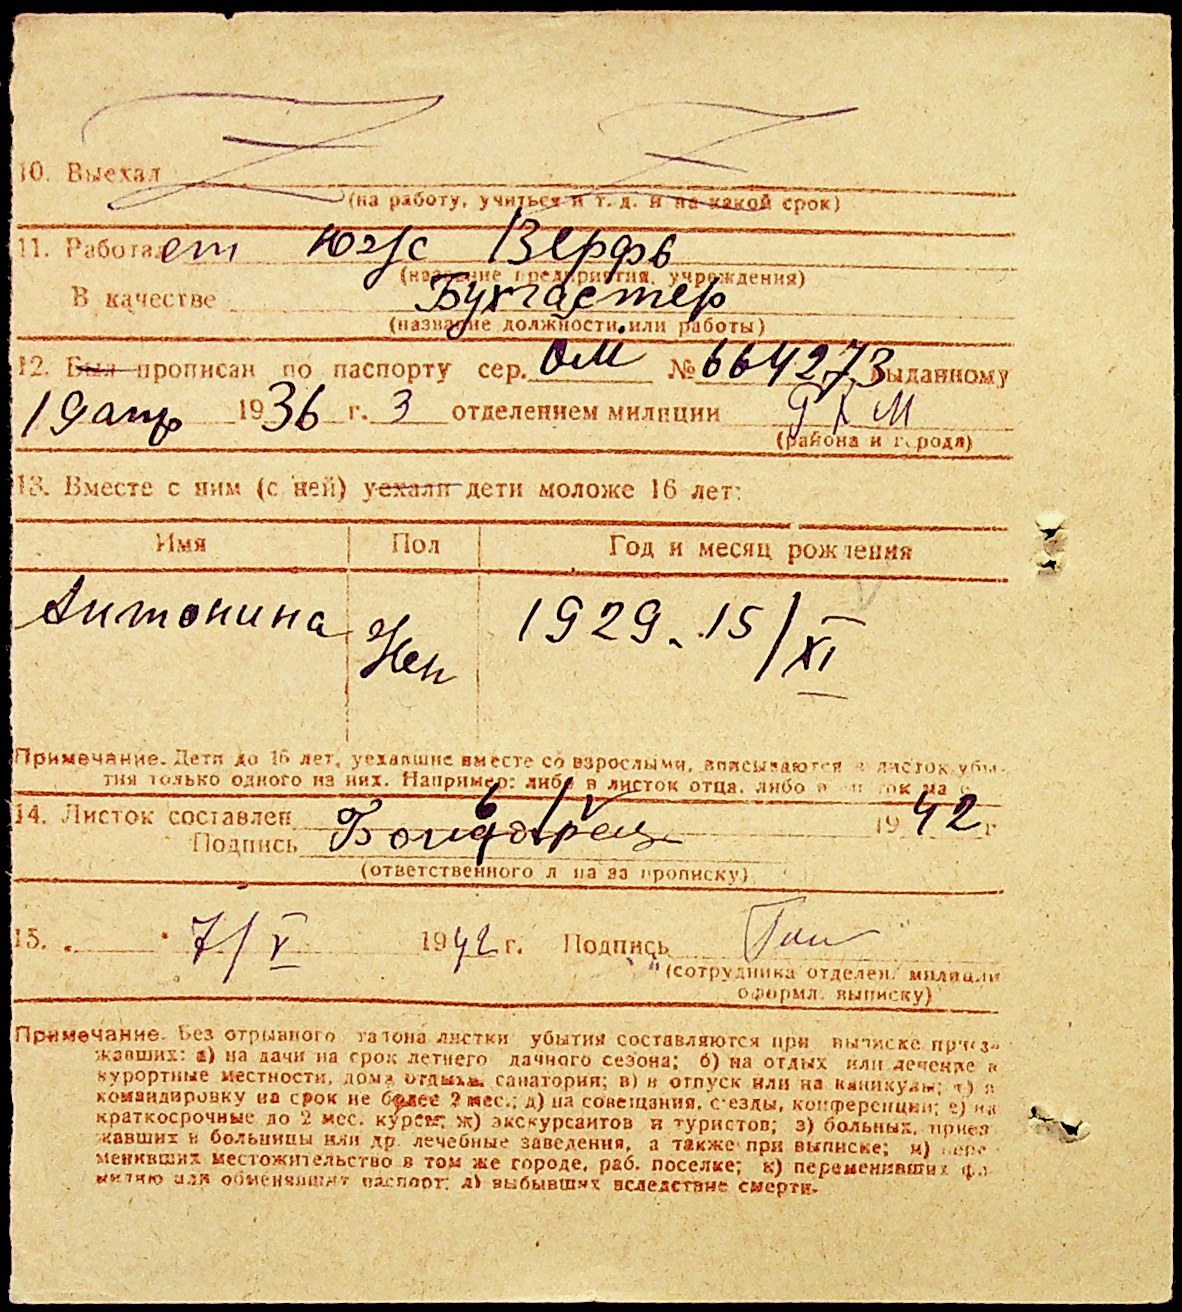 10. Выехал
(на работу, учиться и т. д. и на какой срок)
11. Работает Юж Верфь
(название предприятия, учреждения)
В качестве Бухгалтер
(название должности или работы)
12. Был прописан по паспорту сер. ОМ № 664273 выданному
19 апр 1936 г. 3 отделением милиции
(района и города)
13. Вместе с ним (с ней) уехали дети моложе 16 лет:
Имя Пол Год и месяц рождения
Антонина Жен 1929. 15/XI
Примечание. Дети до 16 лет, уехавшие вместе со взрослыми, вписываются в листок убы-
тия только одного из них. Например: либо в листок отца, либо в листок ма
14. Листок составлен 6/V 1942 г
Подпись Бондарец
(ответственного лица за прописку)
15. 7/V 1942 г. Подпись
(сотрудника отделен. милиции
оформл. выписку)
Примечание. Без отрывного талона листки убытия составляются при выписке приез-
жавших: а) на дачи на срок летнего дачного сезона; б) на отдых или лечение в
курортные местности, дома отдыха, санатории; в) в отпуск или на каникулы; г) в
командировку на срок не более 2 мес.; д) на совещания, съезды, конференции; е) на
краткосрочные до 2 мес. курсы; ж) экскурсантов и туристов; з) больных, приез
жавших в больницы или др. лечебные заведения, а также при выписке; и) пере-
менивших местожительство в том же городе, раб. поселке; к) переменивших фа-
милию или обменявших паспорт; л) выбывших вследствие смерти.